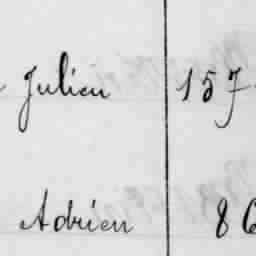 Julien 157
Adrien 86